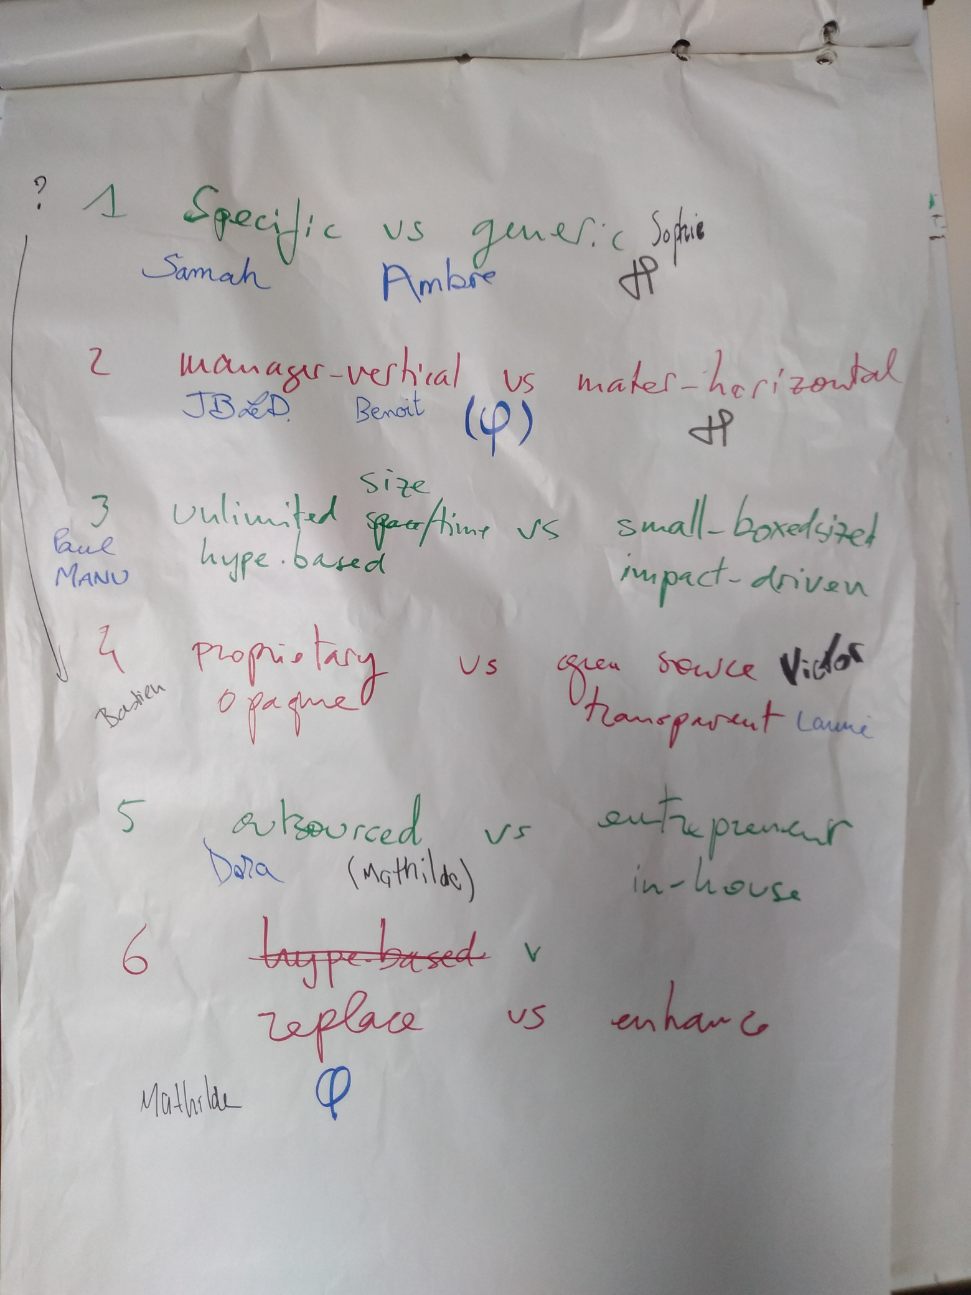 ?
1 Specific vs generic Sophie
Samah Ambre
2 manager-vertical vs maker-horizontal
JB Benoit (φ)
size
3 unlimited space/time vs small-boxedsized
Paul hype-based impact-driven
MANU
4 proprietary vs open source Victor
Bastien opaque transparent Laurie
5 outsourced vs entrepreneur
Dora (Mathilde) in-house
6 hype-based v
replace vs enhance
Mathilde φ